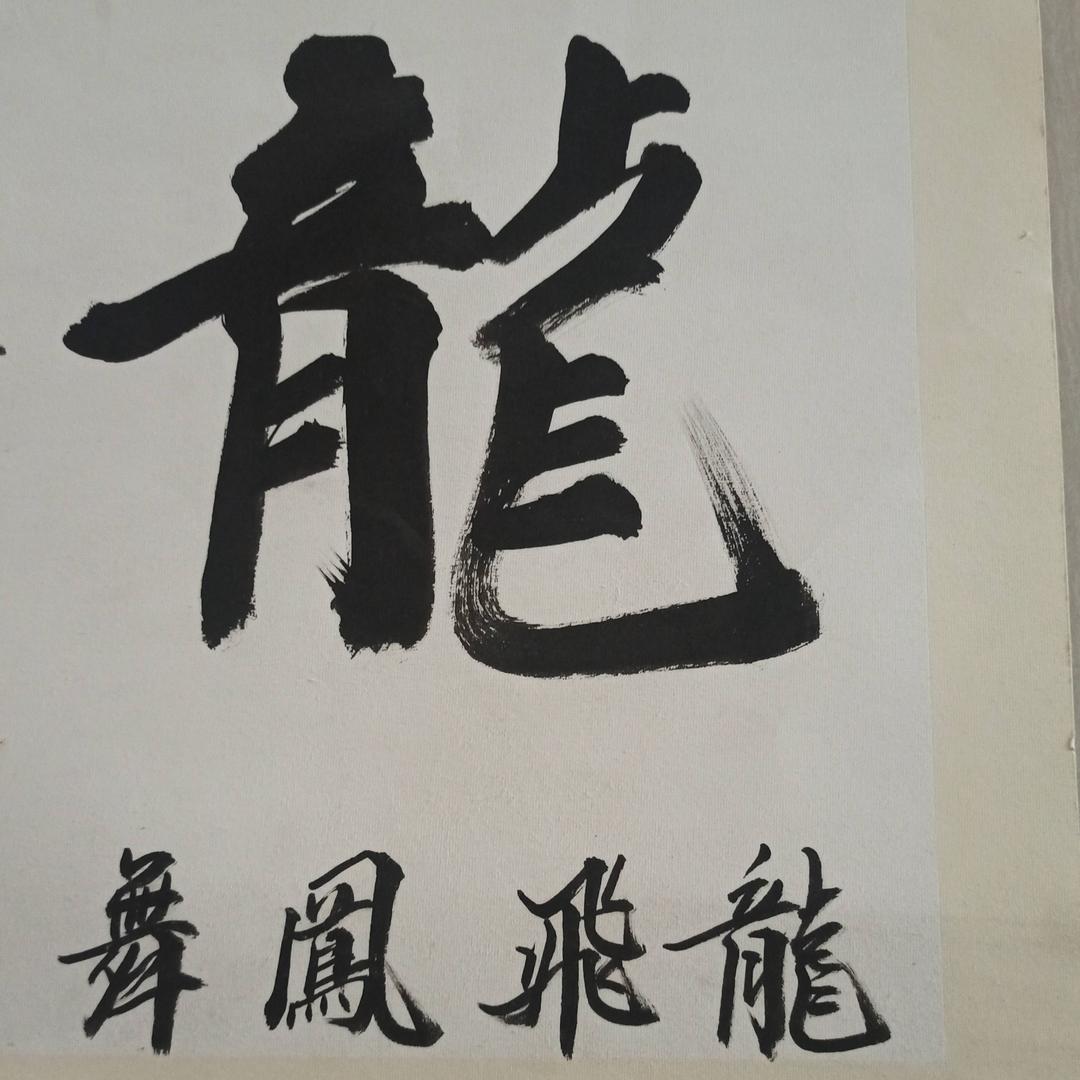 龍
龍飛鳳舞